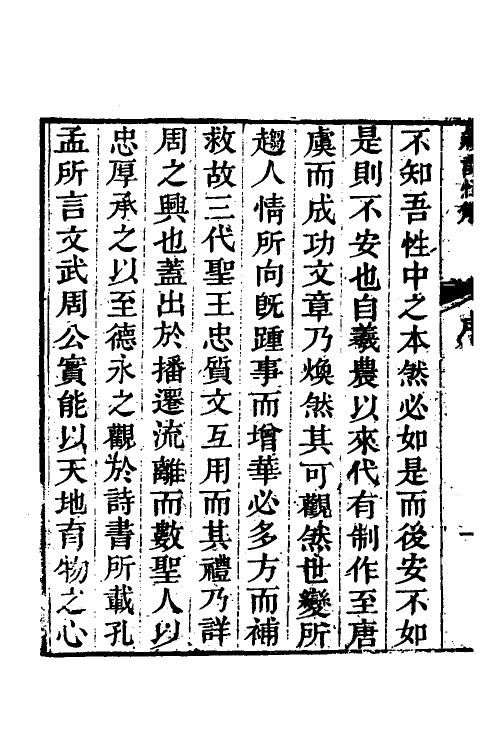 不知吾性中之本然必如是而後安不如
是則不安也自羲農以來代有制作至唐
虞而成功文章乃煥然其可觀然世變所
趨人情所向旣踵事而增華必多方而補
救故三代聖王忠質文互用而其禮乃詳
周之興也蓋出於播遷流離而數聖人以
忠厚承之以至德永之觀於詩書所載孔
孟所言文武周公實能以天地育物之心